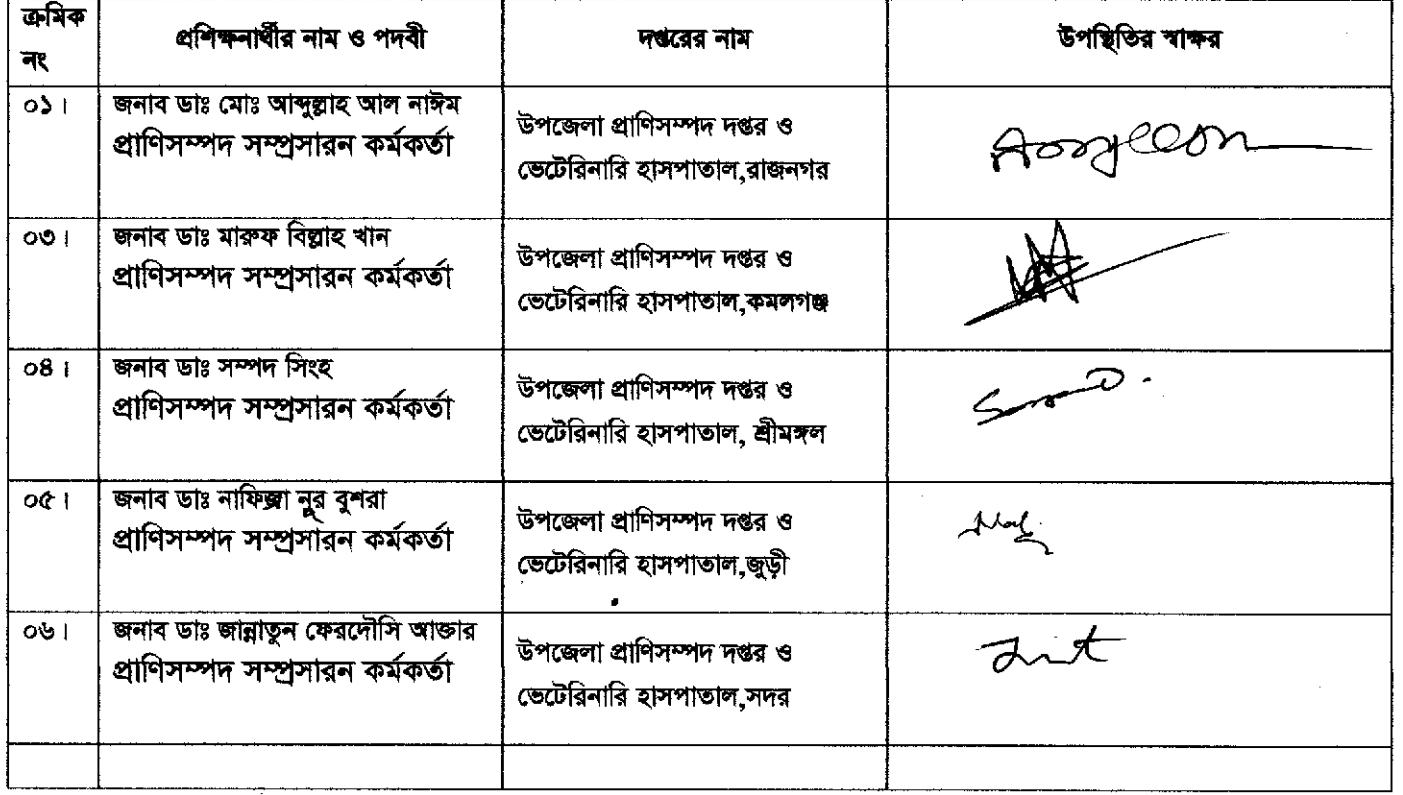 ক্রমিক নং
প্রশিক্ষনার্থীর নাম ও পদবী
দপ্তরের নাম
উপস্থিতির স্বাক্ষর
০১।
জনাব ডাঃ মোঃ আব্দুল্লাহ আল নাঈম
প্রাণিসম্পদ সম্প্রসারন কর্মকর্তা
উপজেলা প্রাণিসম্পদ দপ্তর ও
ভেটেরিনারি হাসপাতাল,রাজনগর
০৩।
জনাব ডাঃ মারুফ বিল্লাহ খান
প্রাণিসম্পদ সম্প্রসারন কর্মকর্তা
উপজেলা প্রাণিসম্পদ দপ্তর ও
ভেটেরিনারি হাসপাতাল,কমলগঞ্জ
০৪।
জনাব ডাঃ সম্পদ সিংহ
প্রাণিসম্পদ সম্প্রসারন কর্মকর্তা
উপজেলা প্রাণিসম্পদ দপ্তর ও
ভেটেরিনারি হাসপাতাল, শ্রীমঙ্গল
০৫।
জনাব ডাঃ নাফিজা নুর বুশরা
প্রাণিসম্পদ সম্প্রসারন কর্মকর্তা
উপজেলা প্রাণিসম্পদ দপ্তর ও
ভেটেরিনারি হাসপাতাল,জুড়ী
০৬।
জনাব ডাঃ জান্নাতুন ফেরদৌসি আক্তার
প্রাণিসম্পদ সম্প্রসারন কর্মকর্তা
উপজেলা প্রাণিসম্পদ দপ্তর ও
ভেটেরিনারি হাসপাতাল,সদর